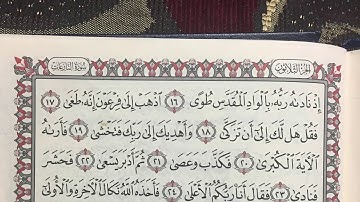 الجزء الثلاثون سورة النازعات
إِذْ نَادَىٰهُ رَبُّهُ بِالْوَادِ الْمُقَدَّسِ طُوًى ١٦ اذْهَبْ إِلَىٰ فِرْعَوْنَ إِنَّهُ طَغَىٰ ١٧
فَقُلْ هَل لَّكَ إِلَىٰ أَن تَزَكَّىٰ ١٨ وَأَهْدِيَكَ إِلَىٰ رَبِّكَ فَتَخْشَىٰ ١٩ فَأَرَىٰهُ
الْآيَةَ الْكُبْرَىٰ ٢٠ فَكَذَّبَ وَعَصَىٰ ٢١ ثُمَّ أَدْبَرَ يَسْعَىٰ ٢٢ فَحَشَرَ
فَنَادَىٰ ٢٣ فَقَالَ أَنَا رَبُّكُمُ الْأَعْلَىٰ ٢٤ فَأَخَذَهُ اللَّهُ نَكَالَ الْآخِرَةِ وَالْأُولَىٰ